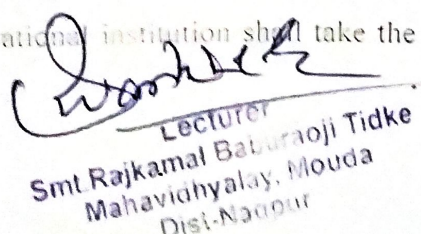 ational institution shall take the
Lecturer
Smt.Rajkamal Baburaoji Tidke
Mahavidhyalay, Mouda
Dist-Nagpur